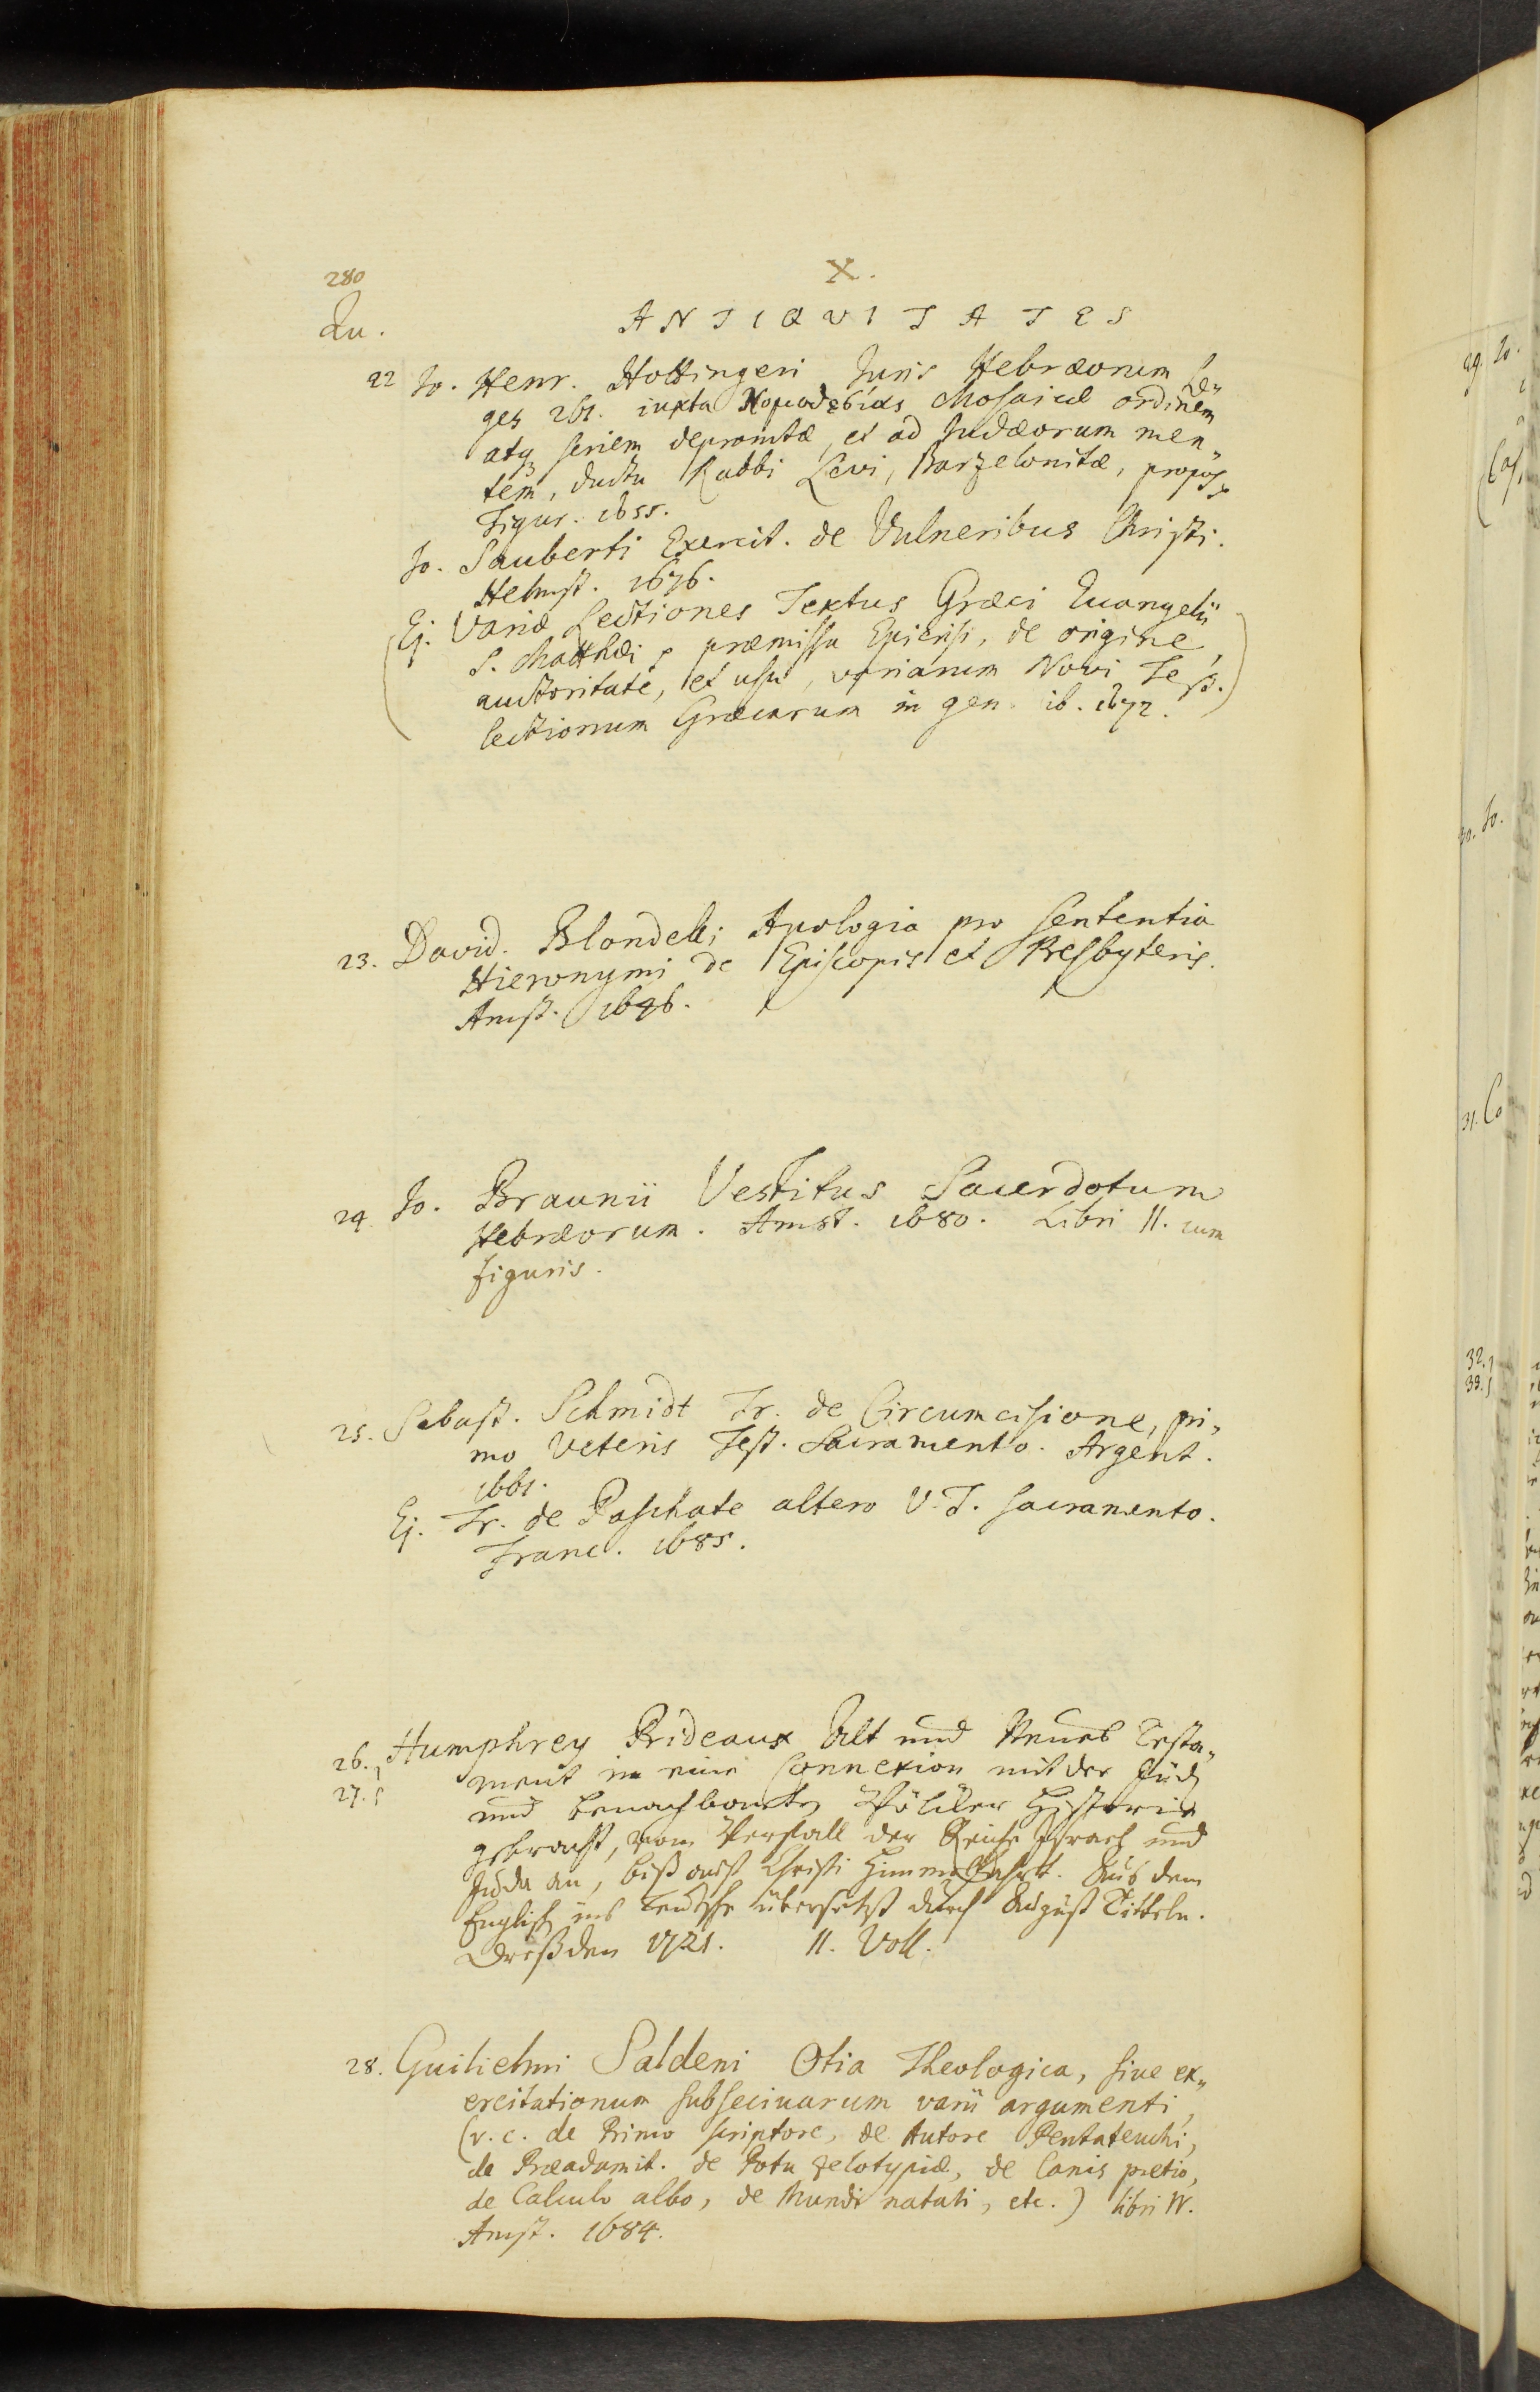 280
X.
Qu.
ANTIQVITATES
22 Jo. Henr. Hottingeri Juris Hebræorum Le„
ges 261. iuxta Νομοθεσίας Mosaicæ ordinem
atq; seriem depromtæ, et ad Judæorum men„
tem, ductu Rabbi Levi, Barzelonitæ, propos.
Tigur. 1655.
Jo. Sauberti Exercit. de Vulneribus Christi.
Helmst. 1676.
(Ej. Variæ Lectiones Textus Græci Euangelii
S. Matthæi, præmissa Epicrisi, de origine,
auctoritate, et usu, variarum Novi Test.
lectionum Græcarum in gen. ib. 1672.)
23. David. Blondelli Apologia pro sententia
Hieronymi de Episcopis et Presbyteris.
Amst. 1646.
24. Jo. Braunii Vestitus Sacerdotum
Hebræorum. Amst. 1680. Libri II. cum
figuris.
25. Sebast. Schmidt Tr. de Circumcisione, pri„
mo Veteris Test. Sacramento. Argent.
1661.
Ej. Tr. de Paschate altero V.T. sacramento.
Franc. 1685.
26. Humphrey Prideaux Alt und Neues Testa„
27. ment in eine Connexion mit der Jüd.
und benachbarten Völcker Historie
gebracht, vom Verfall der Reiche Israel und
Juda an, biß auf Christi Himmelfahrt. Aus dem
Englisch ins Teutsche übersetzt durch August Titteln.
Dreßden 1721. II. Voll.
28. Guilielmi Saldeni Otia Theologica, sive ex„
ercitationum subsecivarum varii argumenti,
(v. c. de Primo scriptore, de Autore Pentateuchi,
de Præadamit. de Potu zelotypiæ, de Canis pretio,
de Calculo albo, de Mundi natali, etc.) libri IV.
Amst. 1684.
29. Jo.
30. Jo.
31. Co
32.
33.